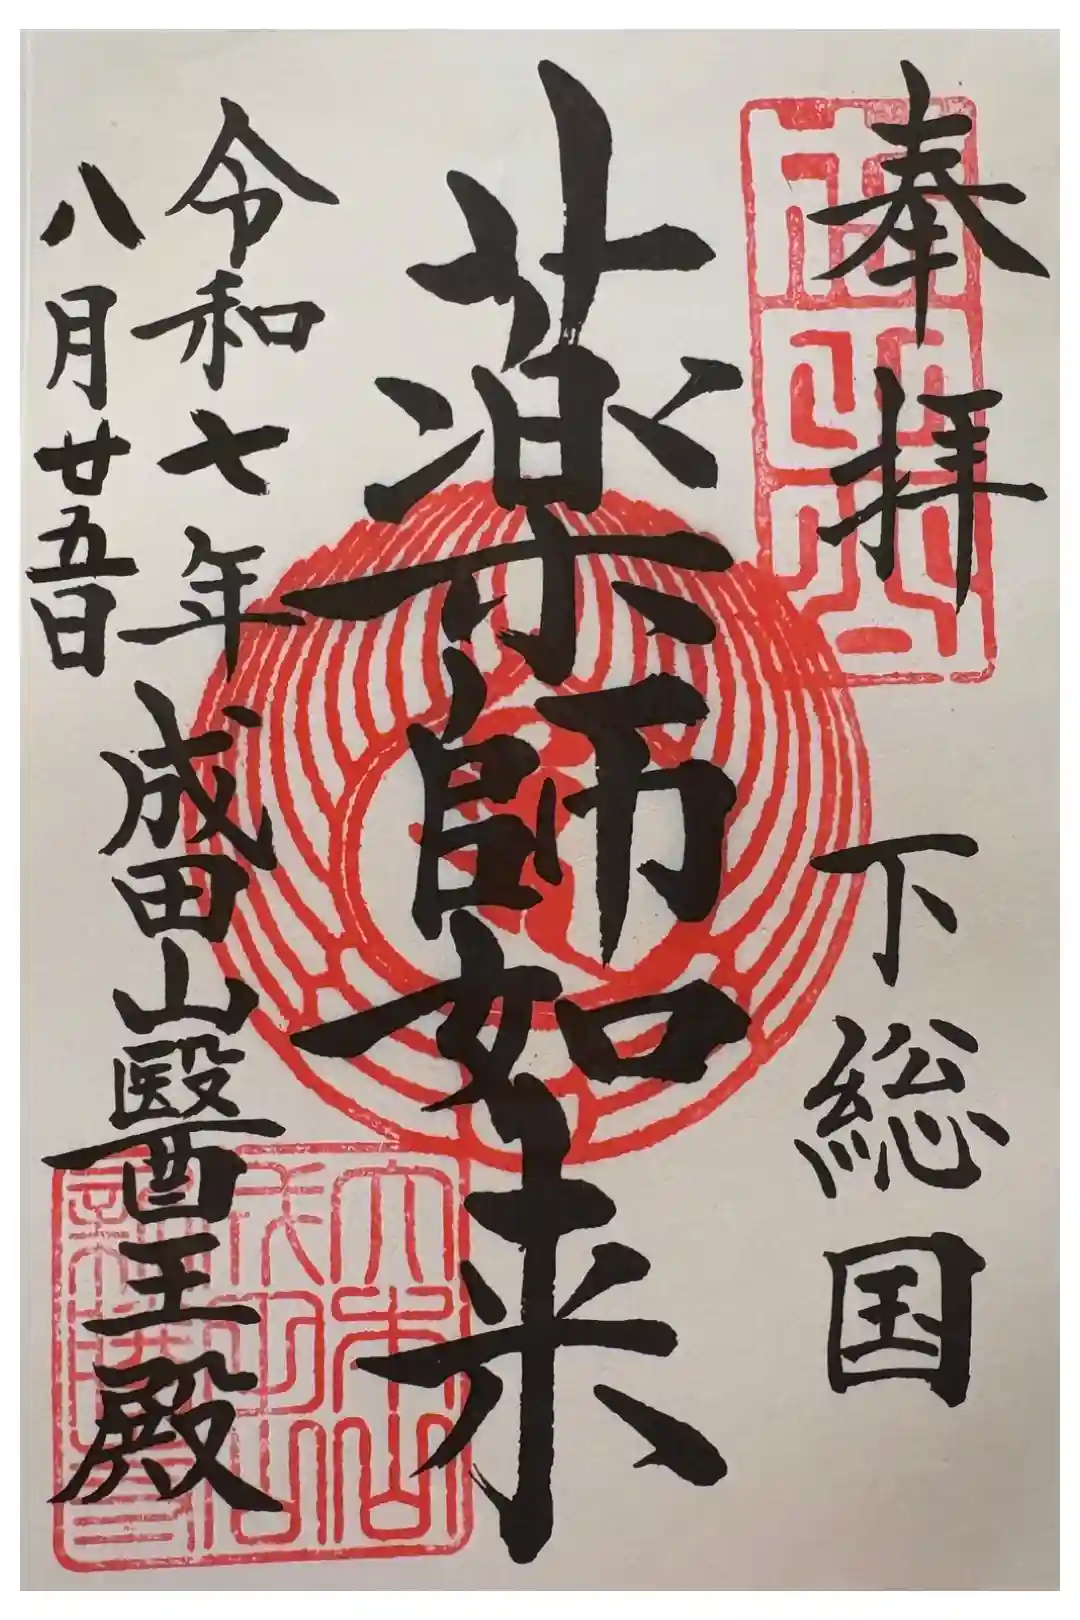 奉拝
下総国
薬師如来
令和七年
八月廿五日
成田山醫王殿